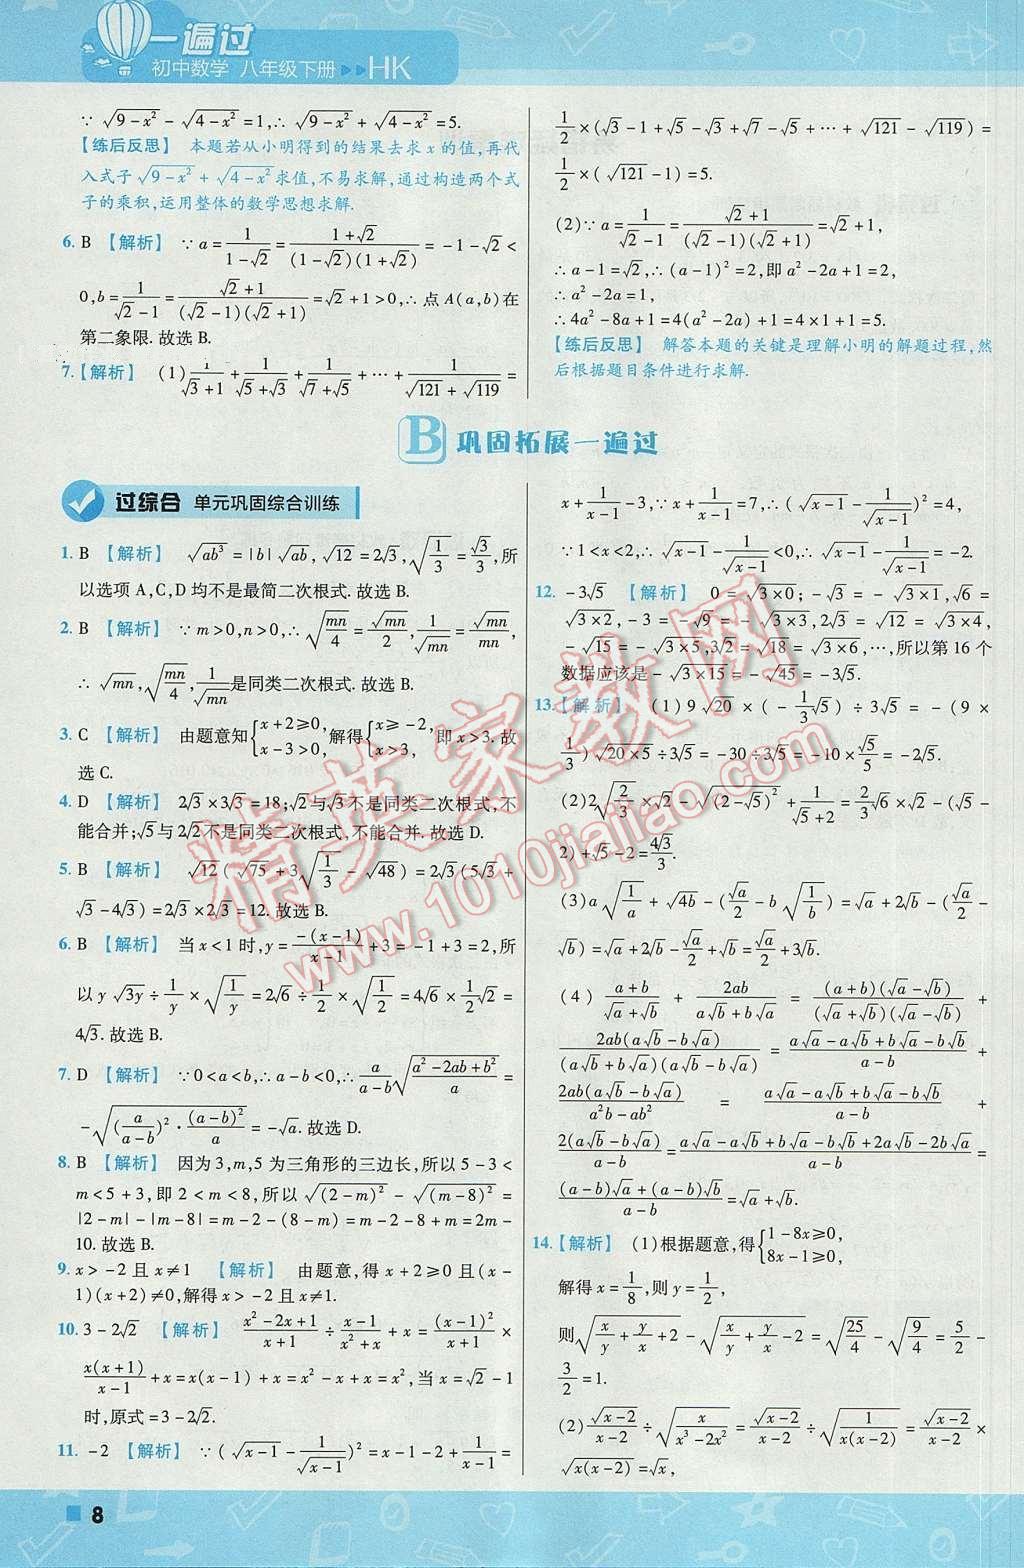 一遍过
初中数学 八年级下册 ▶▶HK
∵ √(9-x²) - √(4-x²) =1,∴ √(9-x²) + √(4-x²) =5.
【练后反思】 本题若从小明得到的结果去求 x 的值,再代
入式子 √(9-x²) + √(4-x²) 求值,不易求解,通过构造两个式
子的乘积,运用整体的数学思想求解.
6. B 【解析】 ∵ a = 1/(1-√2) = (1+√2)/((1-√2)(1+√2)) = -1-√2 <
0,b = 1/(√2-1) = (√2+1)/((√2-1)(√2+1)) = √2+1>0,∴ 点 A(a,b)在
第二象限. 故选 B.
7.【解析】 (1) 1/(√3+1) + 1/(√5+√3) + 1/(√7+√5) + … + 1/(√121+√119) =
1/2 ×(√3-1+√5-√3+√7-√5+…+√121-√119) =
1/2 ×(√121-1) =5.
(2)∵ a = 1/(√2-1) = (√2+1)/((√2-1)(√2+1)) = √2+1,
∴ a-1=√2,∴ (a-1)²=2,即 a²-2a+1=2,
∴ a²-2a=1.
∴ 4a²-8a+1=4(a²-2a)+1=4×1+1=5.
【练后反思】 解答本题的关键是理解小明的解题过程,然
后根据题目条件进行求解.
B 巩固拓展一遍过
过综合 单元巩固综合训练
1. B 【解析】 √(ab³) =|b|√(ab),√12 =2√3,√(1/3) = √3/3,所
以选项 A,C,D 均不是最简二次根式. 故选 B.
2. B 【解析】 ∵ m>0,n>0,∴ √(mn/4) = √(mn)/2, 1/√(mn) = √(mn)/mn,
∴ √(mn),√(mn/4),1/√(mn) 是同类二次根式. 故选 B.
3. C 【解析】 由题意知{x+2≥0, x-3>0,解得{x≥-2, x>3,即 x>3. 故
选 C.
4. D 【解析】 2√3×3√3=18;√2与√3不是同类二次根式,不
能合并;√5与2√2不是同类二次根式,不能合并. 故选 D.
5. B 【解析】 √12(√75+3√(1/3)-√48) =2√3(5√3+
√3-4√3)=2√3×2√3=12. 故选 B.
6. B 【解析】 当 x<1 时,y = -(x-1)/(x-1) +3=-1+3=2,所
以 y√(3y) ÷ 1/y × √(1/y) =2√6 ÷ 1/2 × √(1/2) =4√6 × 1/2 √2 =
4√3. 故选 B.
7. D 【解析】 ∵ 0<a<b,∴ a-b<0,∴ a/(a-b) √((a²-2ab+b²)/a) =
-√((a/(a-b))²·(a-b)²/a) = -√a. 故选 D.
8. B 【解析】 因为 3,m,5 为三角形的三边长,所以 5-3<
m<5+3,即 2<m<8,所以 √((2-m)²) - √((m-8)²) =
|2-m|-|m-8|=m-2-(8-m)=m-2-8+m=2m-
10. 故选 B.
9. x>-2 且 x≠1 【解析】 由题意,得 x+2≥0 且(x-
1)(x+2)≠0,解得 x>-2 且 x≠1.
10. 3-2√2 【解析】 (x²-2x+1)/(x+1) ÷ (x-1)/(x²+x) + x = (x-1)²/(x+1) ×
x(x+1)/(x-1) +x=x(x-1)+x=x²-x+x=x²,当 x=√2-1
时,原式=3-2√2.
11. -2 【解析】 ∵ (√(x-1) - 1/√(x-1))² =x-1-2+ 1/(x-1) =
x+ 1/(x-1) -3,∵ x+ 1/(x-1) =7,∴ (√(x-1) - 1/√(x-1))² =4,
∵ 1<x<2,∴ √(x-1) - 1/√(x-1) <0,∴ √(x-1) - 1/√(x-1) = -2.
12. -3√5 【解析】 0=√(3×0);-√3=-√(3×1),√6=
√(3×2),-3=-√9=-√(3×3),2√3=√12=√(3×4),
-√15=-√(3×5),3√2=√(3×6),…,所以第 16 个
数据应该是-√(3×15)=-√45=-3√5.
13.【解析】 (1)9√20×(-1/3 √5)÷3√5=-(9×
1/3)√(20×5)÷3√5=-30÷3√5=-10×√5/5=-2√5.
(2)2√(2/3)×√2-√((2-√5)²)+1/(√5+2)=2/3 √6×√2-(√5-
2)+√5-2=4√3/3.
(3)a√(1/a)+√(4b)-(√a/2-b√(1/b))=√a+2√b-(√a/2-
√b)=√a+2√b-√a/2+√b=√a/2+3√b.
(4) (a+b)/(√a+√b) + 2ab/(a√b+b√a) = (a+b)(√a-√b)/((√a+√b)(√a-√b)) +
2ab(a√b-b√a)/((a√b+b√a)(a√b-b√a)) = (a√a-a√b+b√a-b√b)/(a-b) +
2ab(a√b-b√a)/(a²b-ab²) = (a√a-a√b+b√a-b√b)/(a-b) +
2(a√b-b√a)/(a-b) = (a√a-a√b+b√a-b√b+2a√b-2b√a)/(a-b) =
((a-b)√a+(a-b)√b)/(a-b) =√a+√b.
14.【解析】 (1)根据题意,得{1-8x≥0, 8x-1≥0,
解得 x=1/8,则 y=1/2,
则√(x/y+y/x+2) - √(x/y+y/x-2) = √(25/4) - √(9/4) = 5/2 -
3/2 =1.
(2) √(x-2)/(x-2) ÷ √(x/(x³-2x²)) = √(x-2)/(x-2) ÷ √(1/(x(x-2))) = √(x-2)/(x-2) ×
√(x(x-2)) =√x,
8
精英家教网
www.1010jiajiao.com